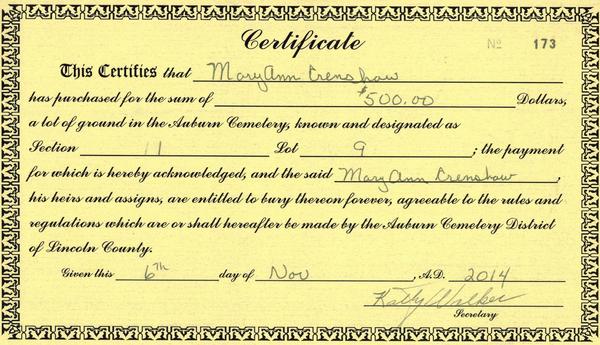 Certificate
Nº 173
This Certifies that MaryAnn Crenshaw
has purchased for the sum of $500.00 Dollars,
a lot of ground in the Auburn Cemetery, known and designated as
Section 11 Lot 9 ; the payment
for which is hereby acknowledged, and the said Mary Ann Crenshaw ,
his heirs and assigns, are entitled to bury thereon forever, agreeable to the rules and
regulations which are or shall hereafter be made by the Auburn Cemetery District
of Lincoln County.
Given this 6th day of Nov , A.D. 2014
Kathy Walker
Secretary